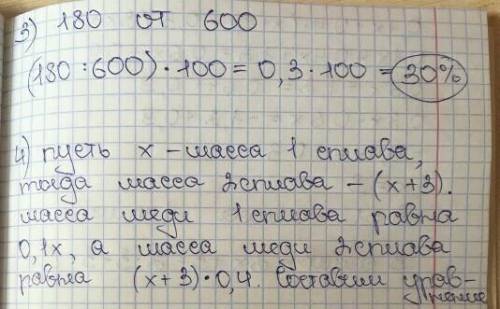 3) 180 от 600
(180 : 600) · 100 = 0,3 · 100 = 30%
4) пусть x – масса 1 сплава,
тогда масса 2 сплава – (x + 3).
масса меди 1 сплава равна
0,1x, а масса меди 2 сплава
равна (x + 3) · 0,4. Составим урав-
нение